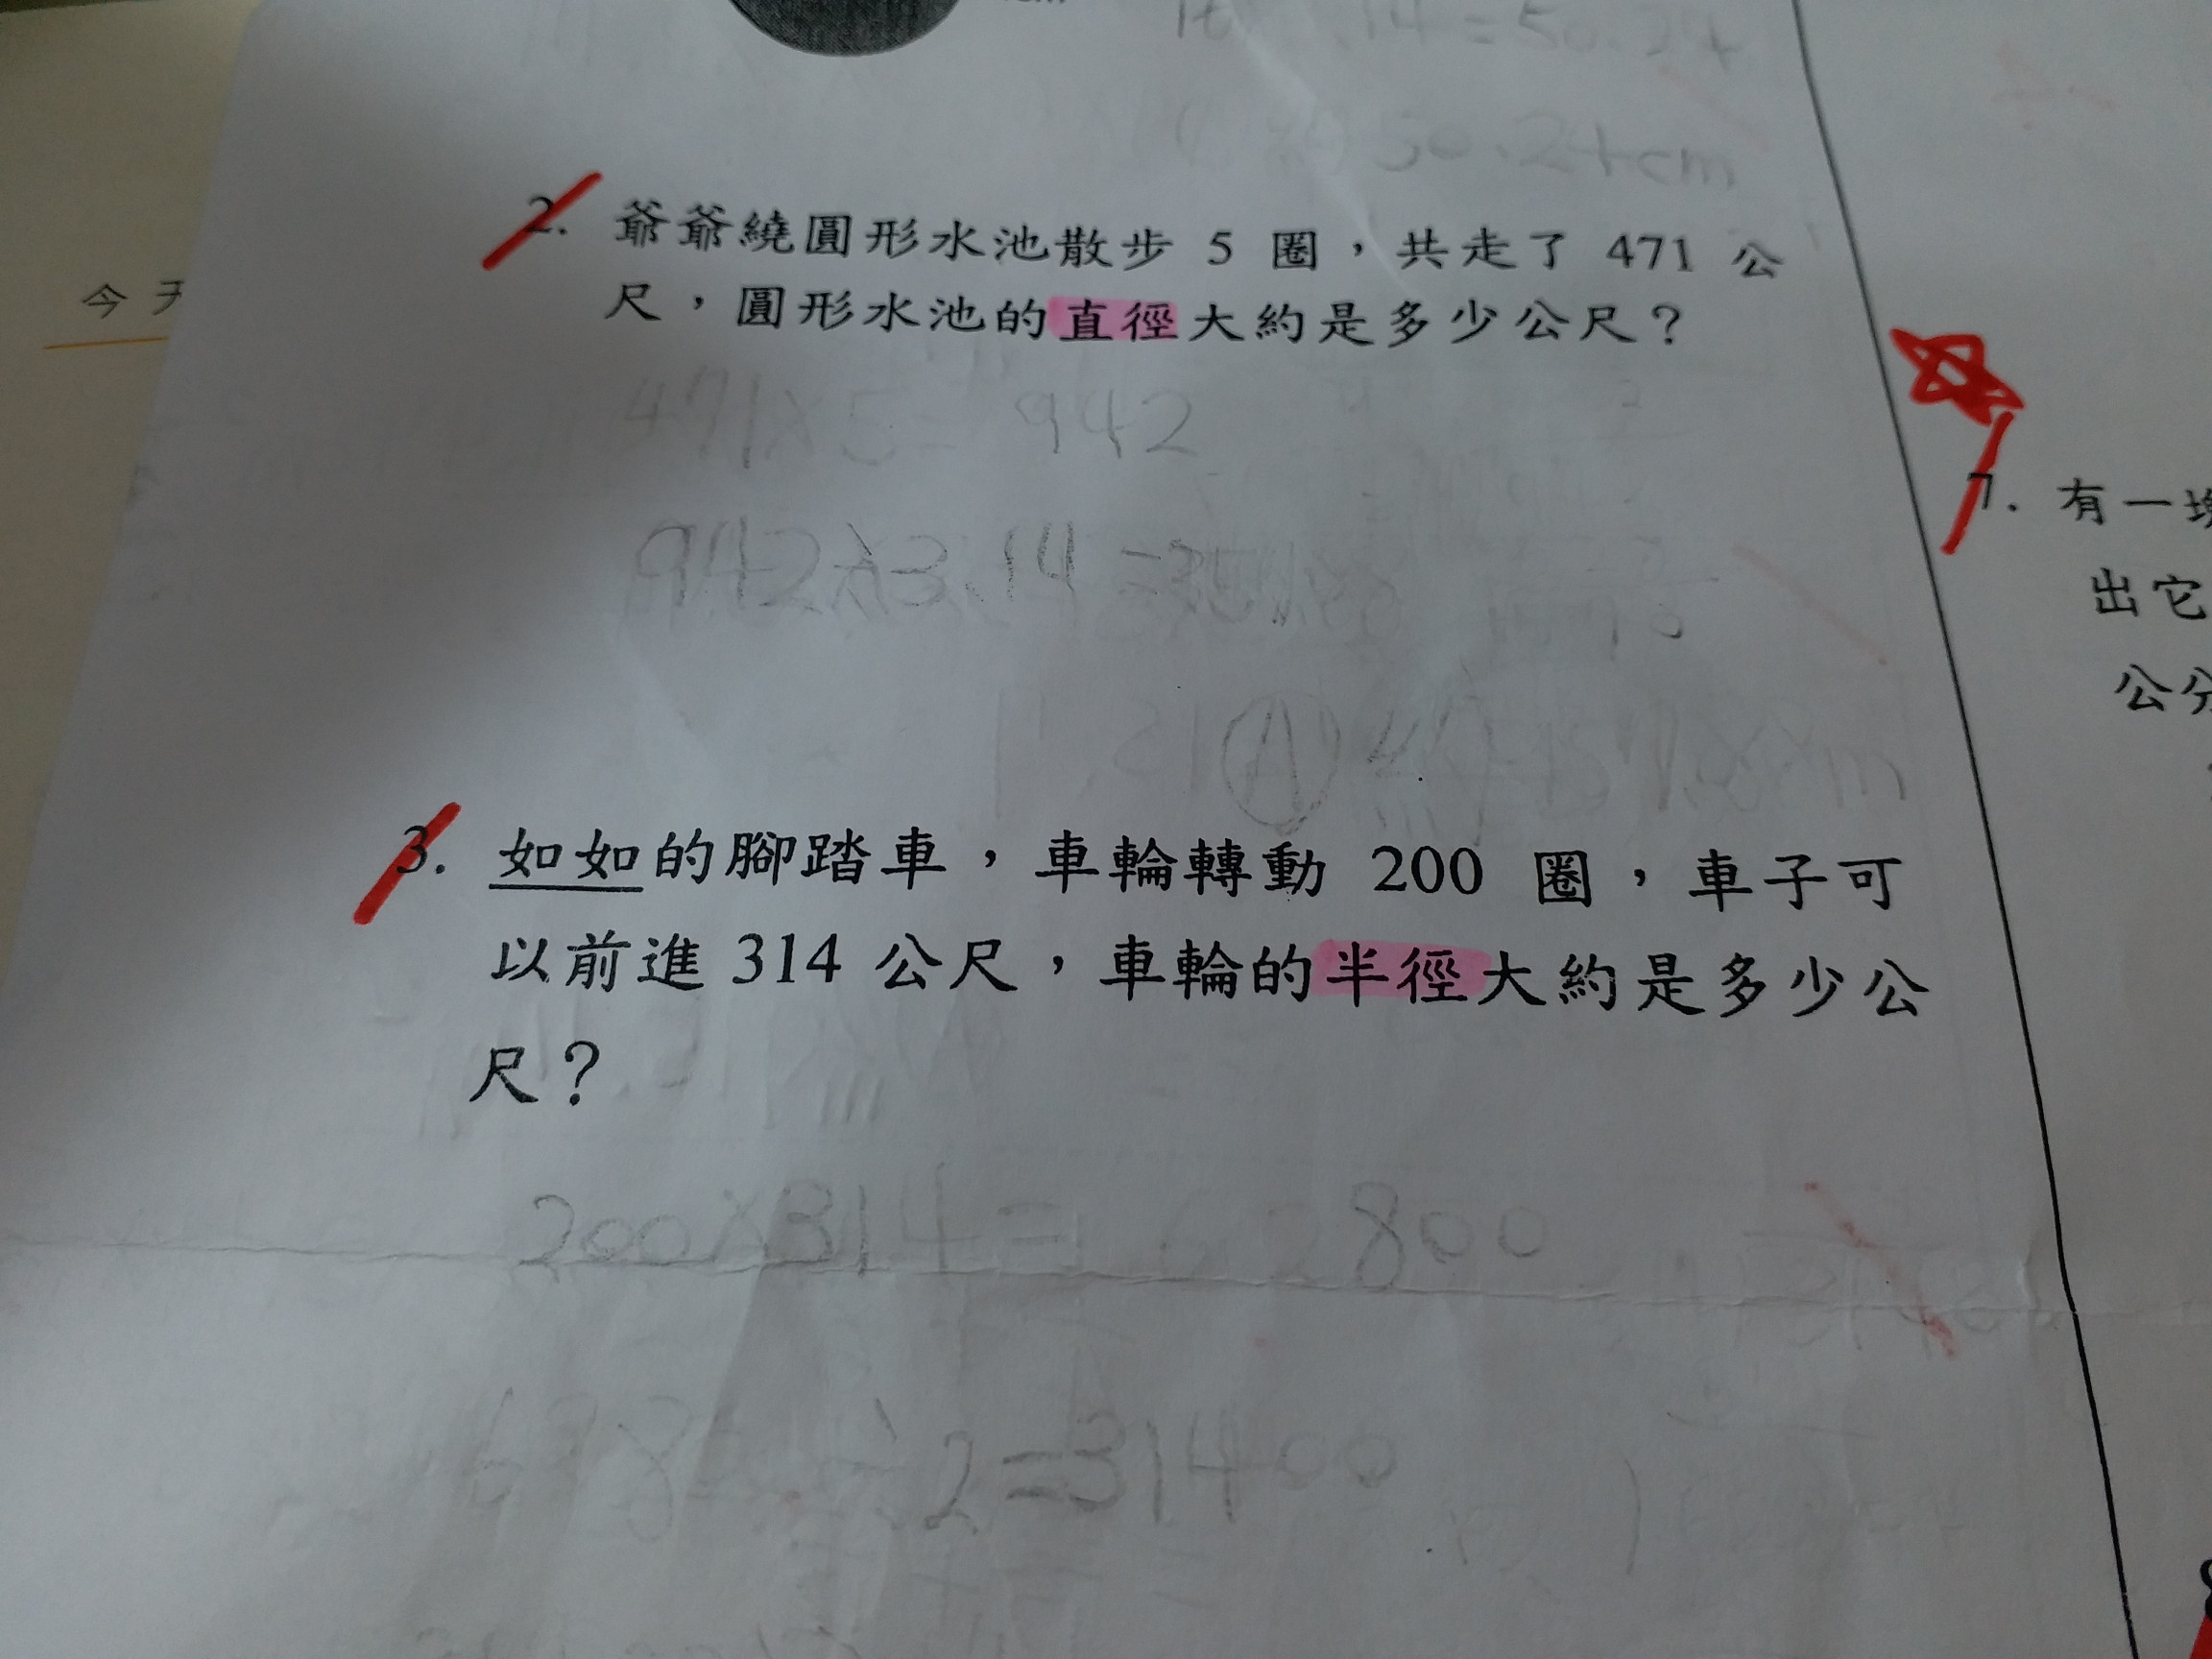 14=50.24
50.24cm
今天
2. 爺爺繞圓形水池散步 5 圈，共走了 471 公
尺，圓形水池的直徑大約是多少公尺？
471×5= 942
942×3.14
3. 如如的腳踏車，車輪轉動 200 圈，車子可
以前進 314 公尺，車輪的半徑大約是多少公
尺？
200×314= 62800
÷2=31400
7. 有一塊
出它
公分